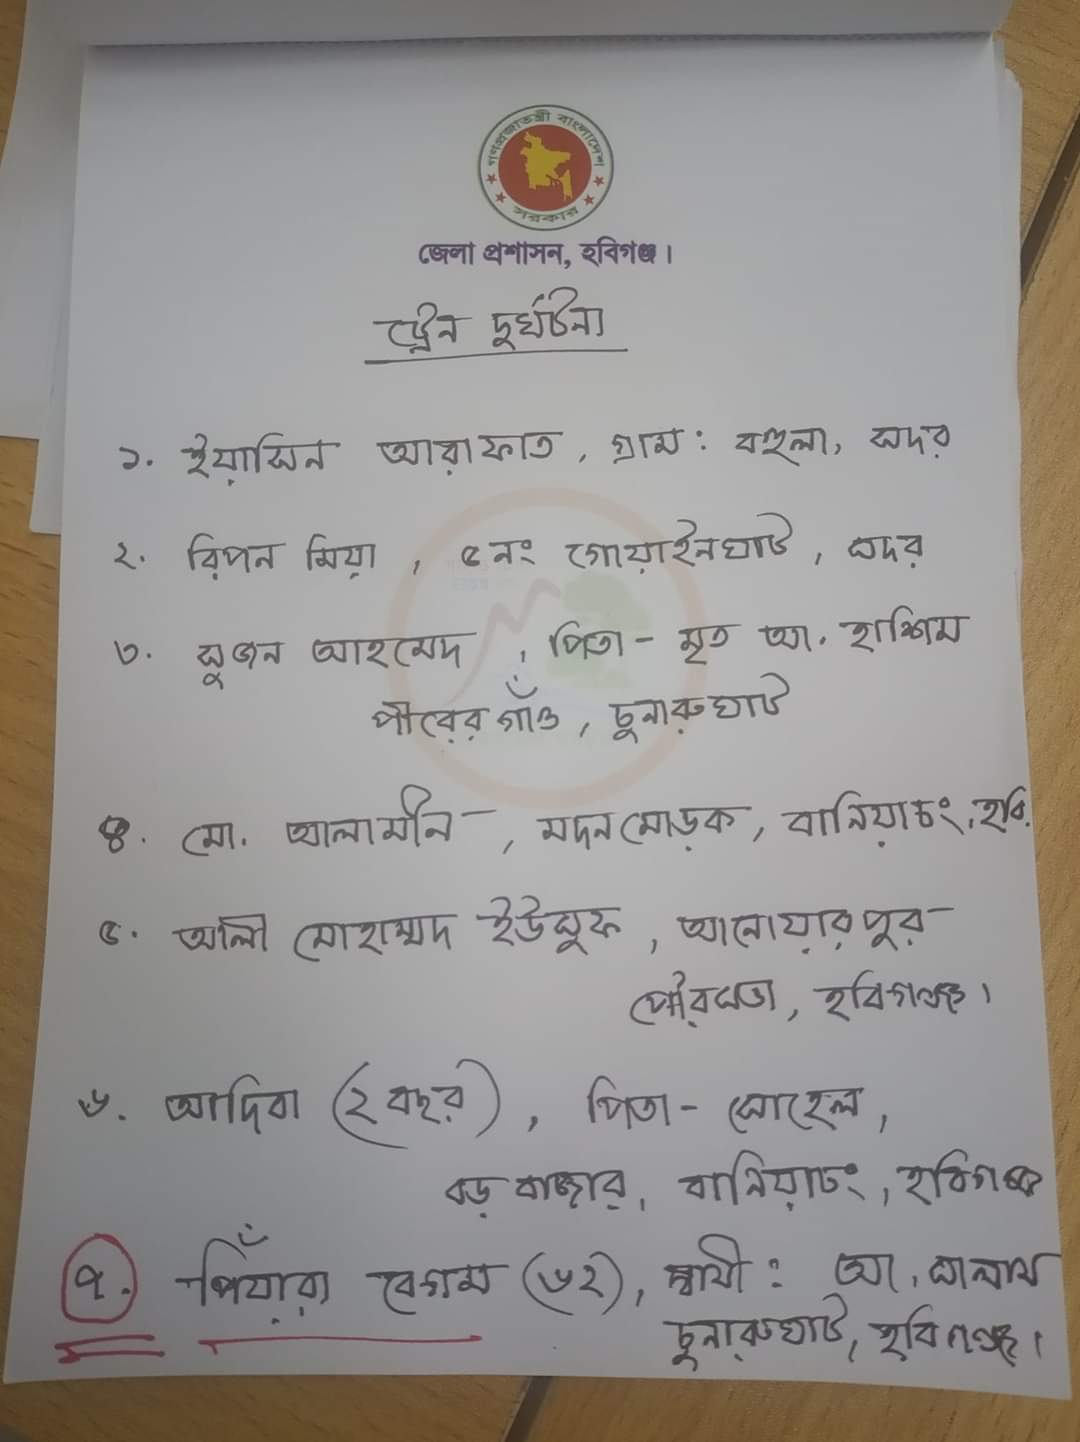 গণপ্রজাতন্ত্রী বাংলাদেশ
সরকার
জেলা প্রশাসন, হবিগঞ্জ।
ট্রেন দুর্ঘটনা
১. ইয়াসিন আরাফাত, গ্রাম: বহুলা, সদর
২. রিপন মিয়া, ৫নং গোয়াইনঘাট, সদর
৩. সুজন আহমেদ, পিতা- মৃত আ. হাশিম
পীরেরগাঁও, চুনারুঘাট
৪. মো. আলামীন, মদনমোড়ক, বানিয়াচং, হবি.
৫. আলী মোহাম্মদ ইউসুফ, আনোয়ারপুর
পৌরসভা, হবিগঞ্জ।
৬. আদিবা (২ বছর), পিতা- সোহেল,
বড় বাজার, বানিয়াচং, হবিগঞ্জ
৭. পিঁয়ারা বেগম (৬২), স্বামী: আ. সালাম
চুনারুঘাট, হবিগঞ্জ।